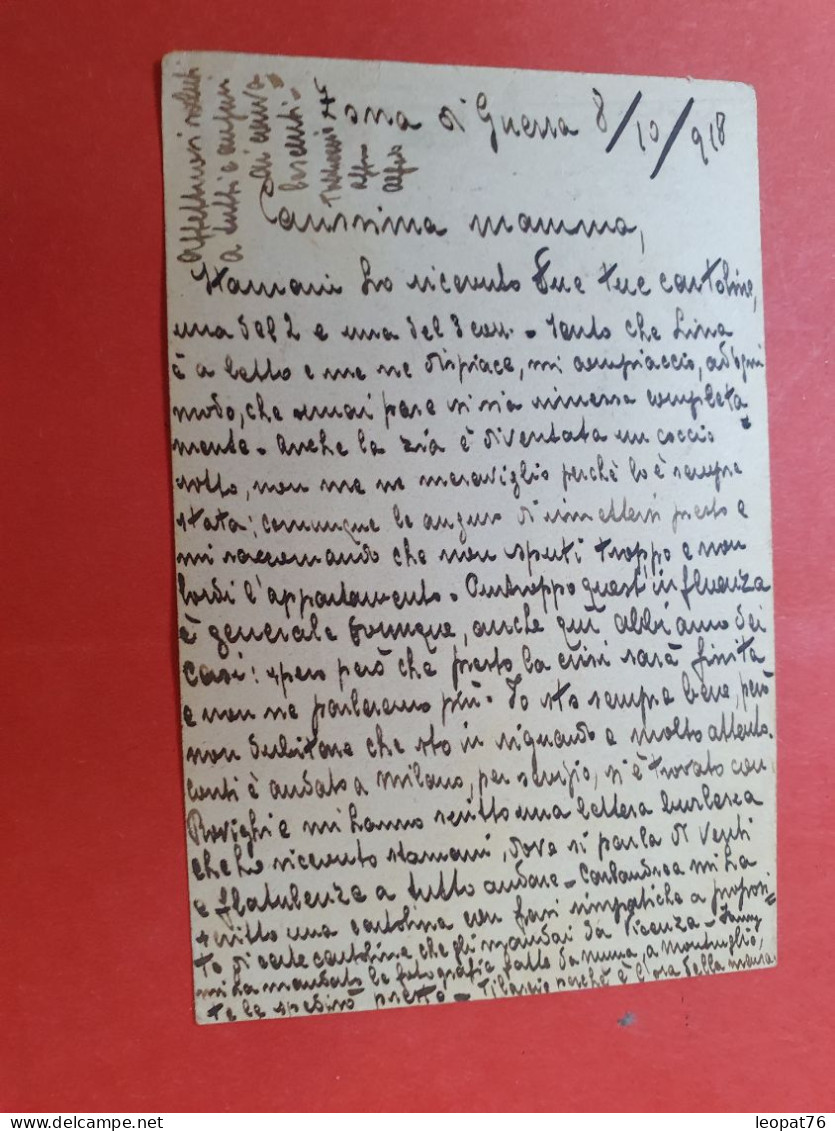 Zona di Guerra 8/10/918
Carissima mamma,
Stamani ho ricevuto due tue cartoline,
una del 2 e una del 3 corr. - Sento che Lina
è a letto e me ne dispiace, mi compiaccio, ad ogni
modo, che ormai pare si sia rimessa completa
mente - Anche la zia è diventata un coccio
rotto, non me ne meraviglio perchè lo è sempre
stata; comunque le auguro di rimettersi presto e
mi raccomando che non sputi troppo e non
lordi l'appartamento - Purtroppo quest'influenza
è generale dovunque, anche qui abbiamo dei
casi: spero però che presto la crisi sarà finita
e non ne parleremo più. Io sto sempre bene, però
non dubitare che sto in riguardo e molto attento.
Conti è andato a Milano, per servizio, si è trovato con
Rovighi e mi hanno scritto una lettera burlesca
che ho ricevuto stamani, dove si parla di venti
e flatulenze a tutto andare - Carlandrea mi ha
scritto una cartolina con frasi simpatiche a proposi=
to di certe cartoline che gli mandai da Vicenza - Fanny
mi ha mandato le fotografie fatte da a Montuglio,
te le spedirò presto - Ti lascio perchè è l'ora della mensa
Affettuosi saluti
a tutti e auguri
di
Alfredo
leopat76